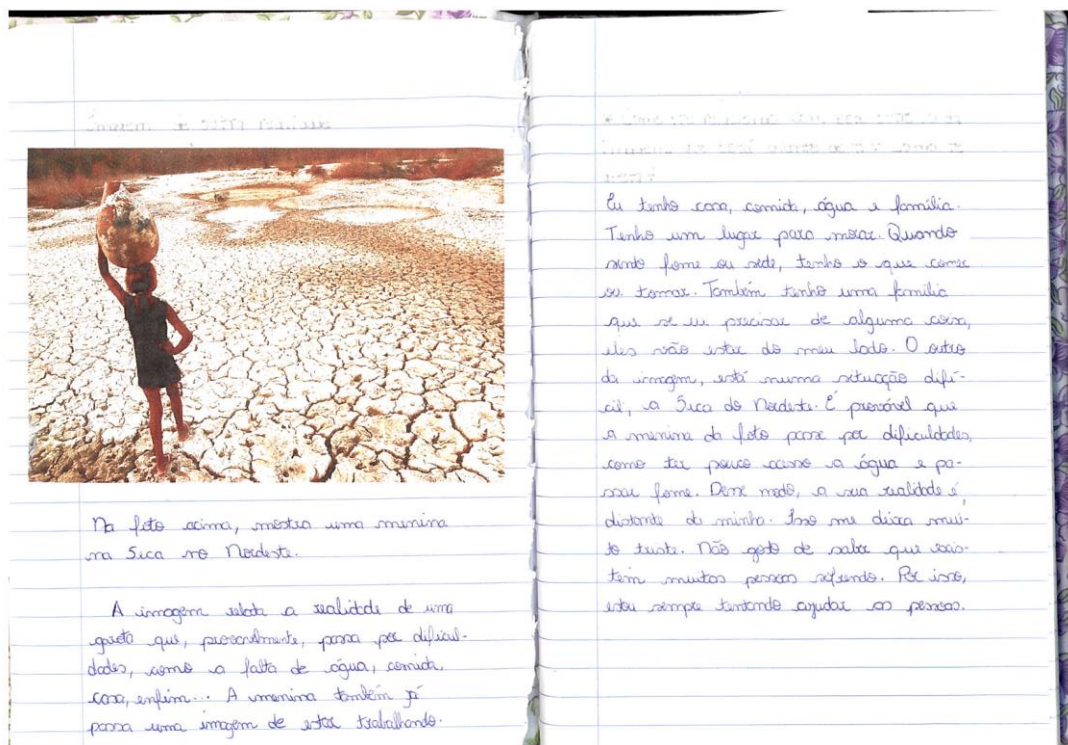 Na foto acima, mostra uma menina
na Seca no Nordeste.
A imagem relata a realidade de uma
garota que, provavelmente, passa por dificul-
dades, como a falta de água, comida,
casa, enfim... A menina também já
passa uma imagem de estar trabalhando.
Eu tenho casa, comida, água e família.
Tenho um lugar para morar. Quando
sinto fome ou sede, tenho o que comer
ou tomar. Também tenho uma família
que se eu precisar de alguma coisa,
eles vão estar do meu lado. O outro
da imagem, está numa situação difí-
cil, a Seca do Nordeste. É provável que
a menina da foto passe por dificuldades,
como ter pouco acesso a água e pa-
ssar fome. Desse modo, a sua realidade é
distante da minha. Isso me deixa mui-
to triste. Não gosto de saber que exis-
tem muitas pessoas sofrendo. Por isso,
estou sempre tentando ajudar as pessoas.